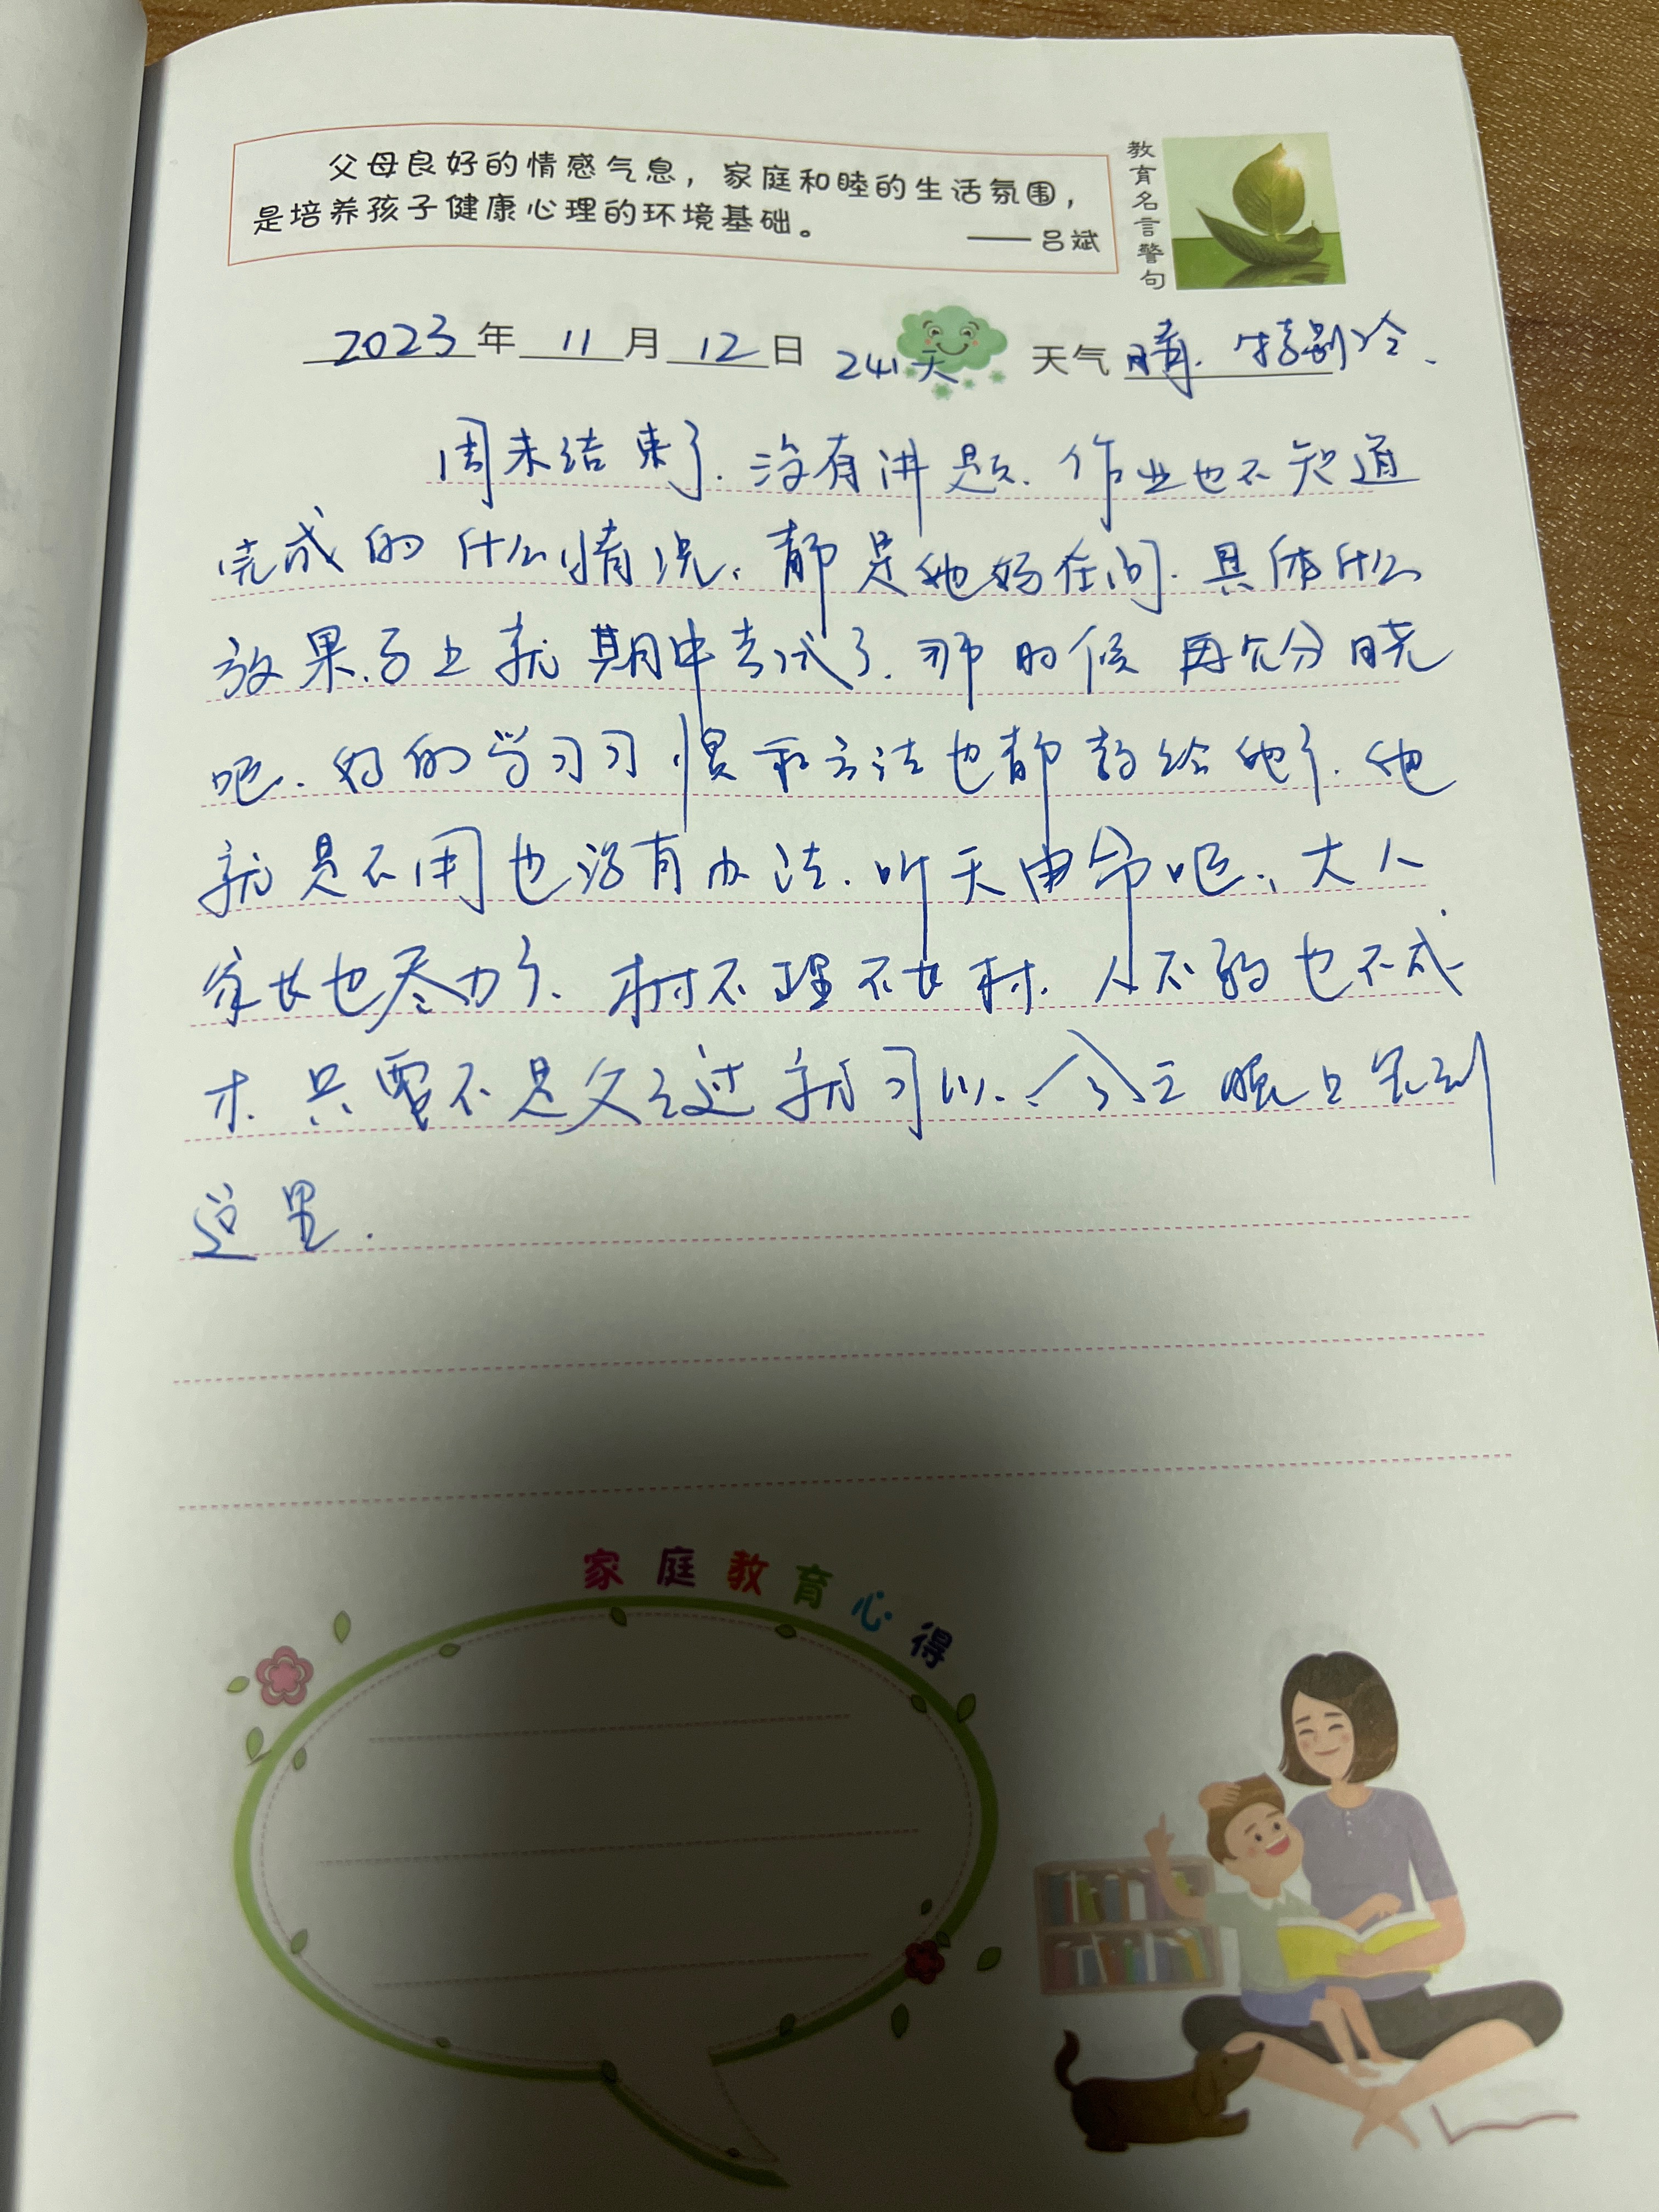 父母良好的情感气息，家庭和睦的生活氛围，
是培养孩子健康心理的环境基础。
——吕斌
教育名言警句
2023年11月12日 241天 天气 晴. 特别冷.
周末结束了.没有讲题.作业也不知道
完成的什么情况.都是她妈在问.具体什么
效果.马上就期中考试了.那时候再见分晓
吧.好的学习习惯和方法也都教给她了.她
就是不用也没有办法.听天由命吧.大人
家长也尽力了.树不理不长材.人不教也不成
才.只要不是父之过就可以.今天晚上先到
这里.
家庭教育心得